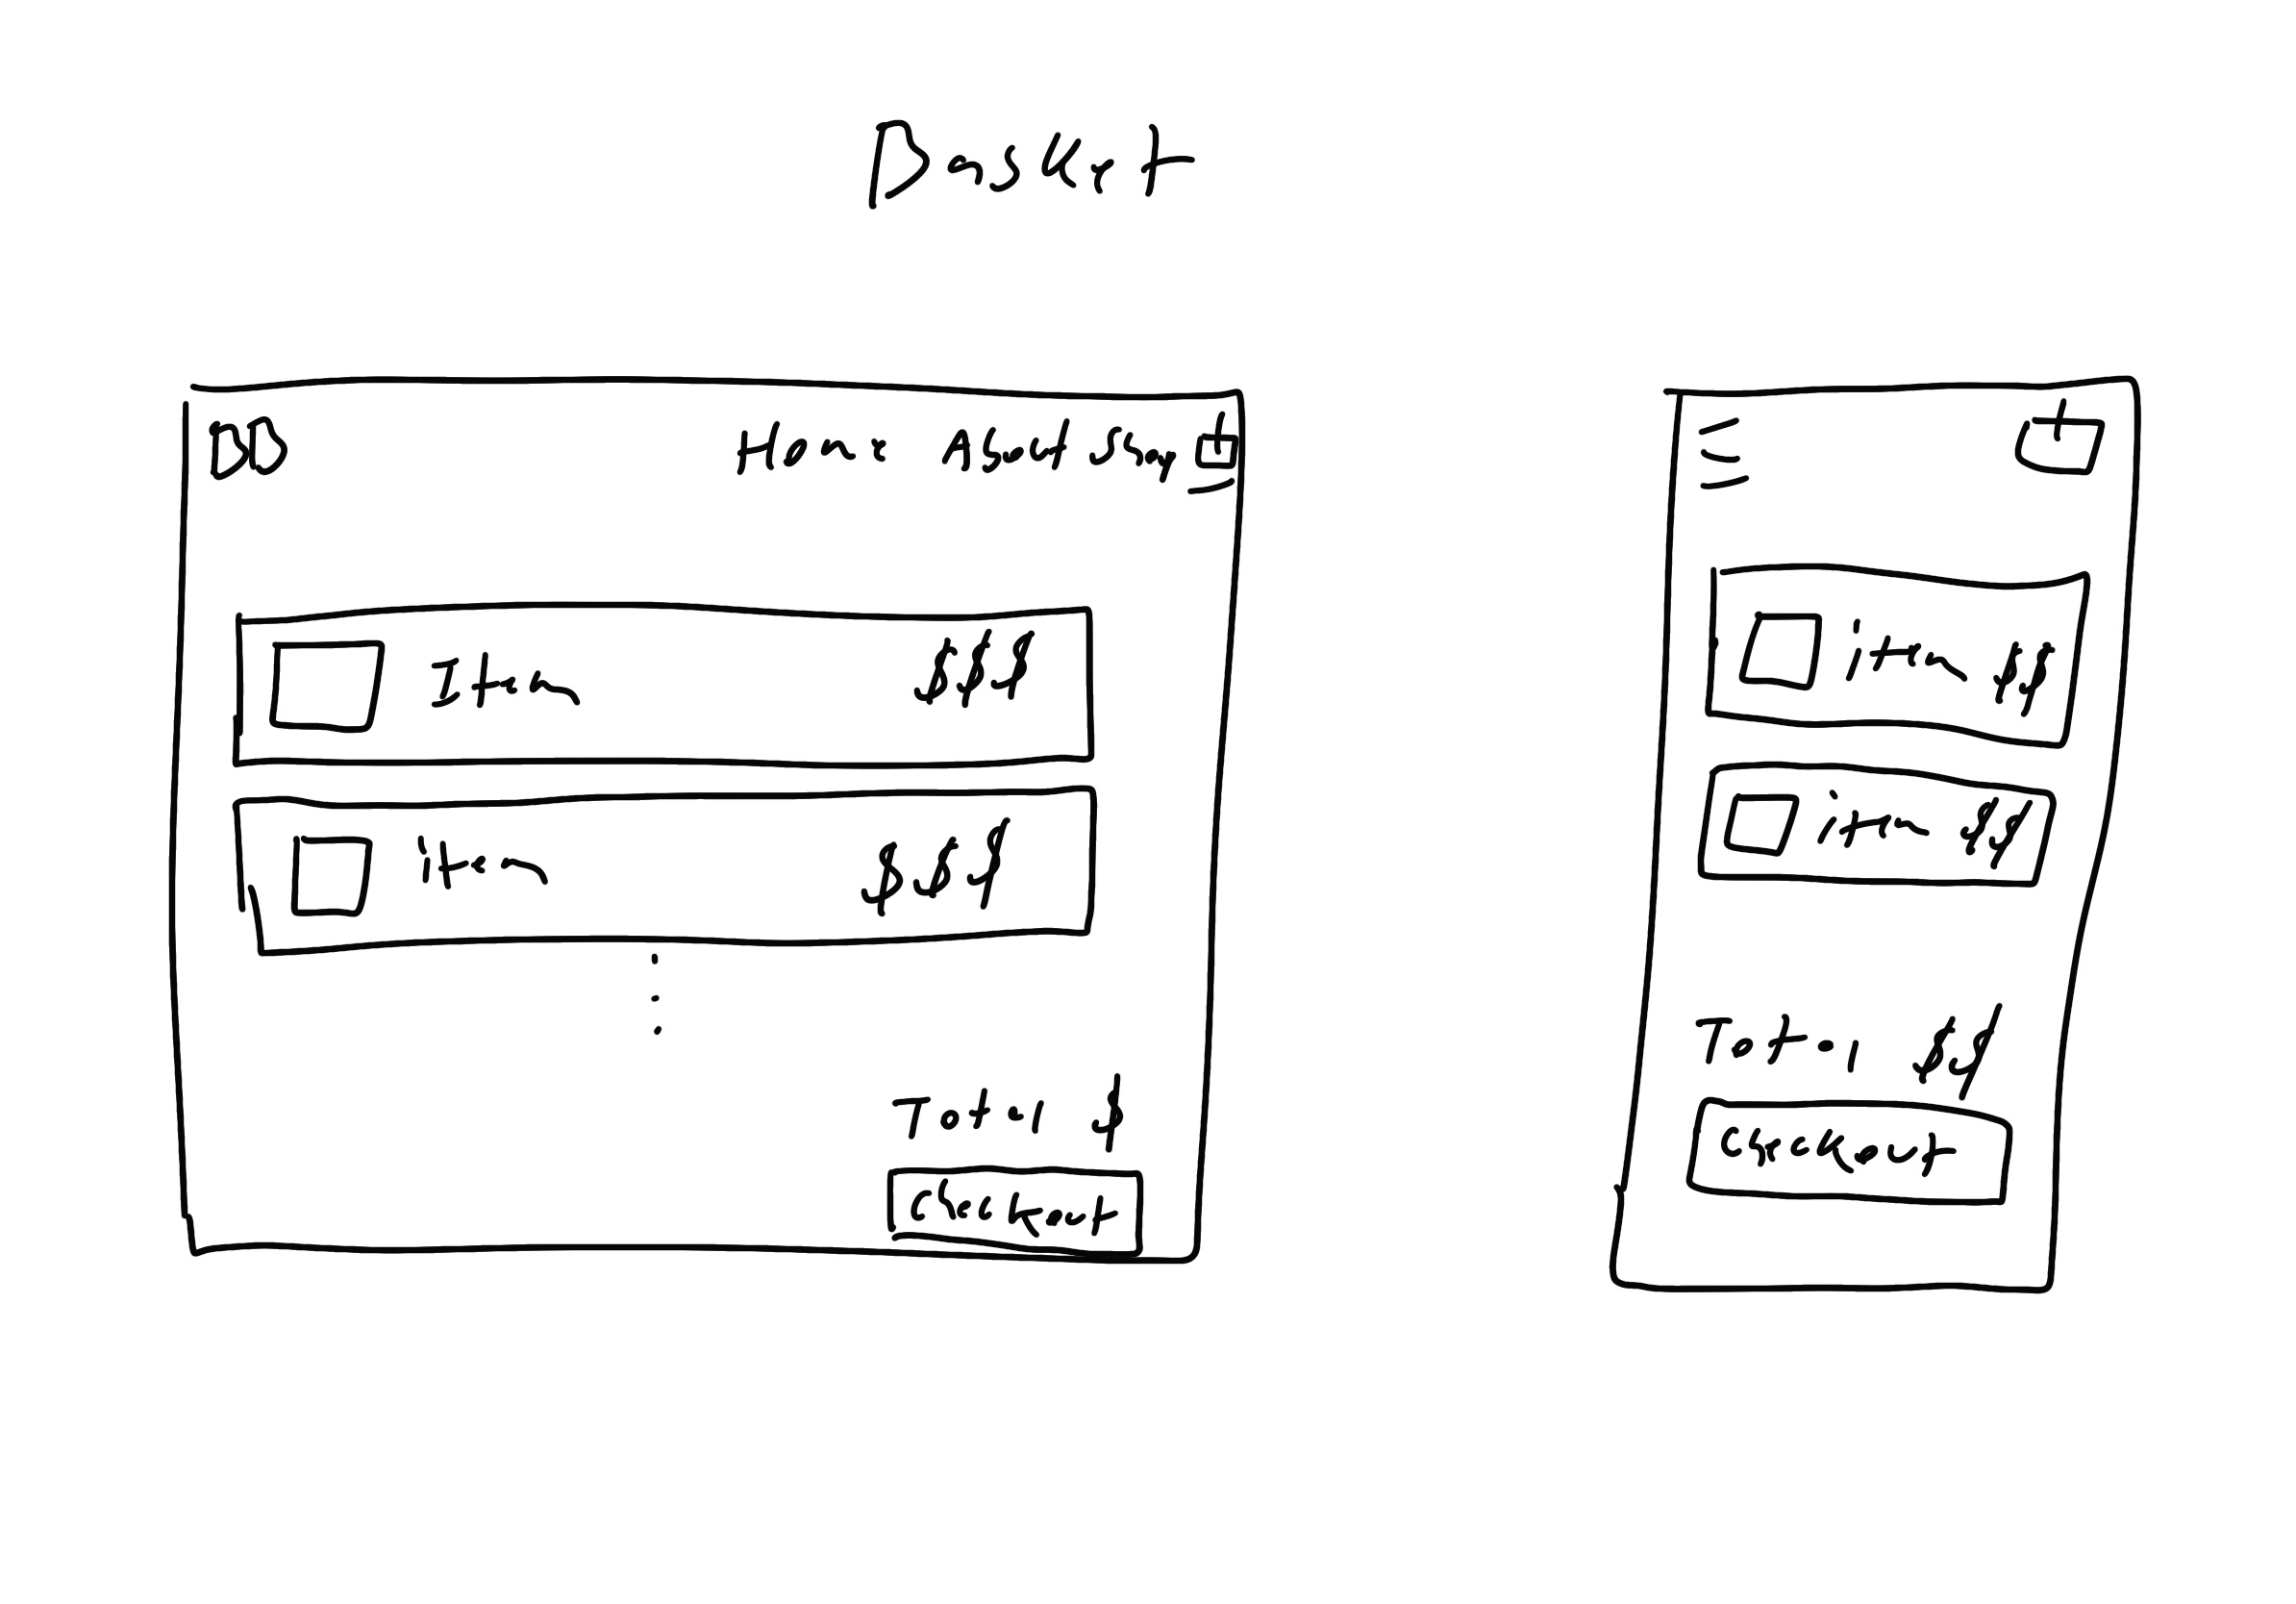 Basket
Home About Shop
Item $$$
item $$$
Total $
Checkout
item $$
item $$
Total $$
Checkout